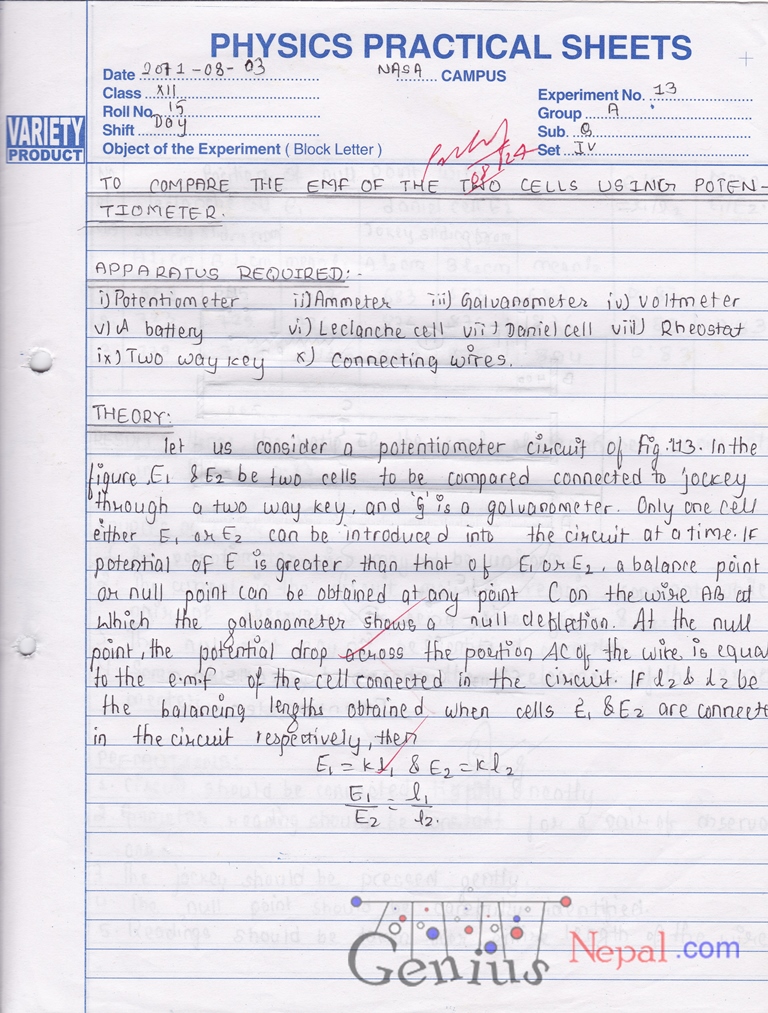 PHYSICS PRACTICAL SHEETS
Date 2071-08-03 NASA CAMPUS
Class XII Experiment No. 13
Roll No. 15 Group A
Shift Day Sub. Q
VARIETY
PRODUCT
Object of the Experiment ( Block Letter ) Set IV
08/24
TO COMPARE THE EMF OF THE TWO CELLS USING POTEN-
TIOMETER.
APPARATUS REQUIRED:-
i) Potentiometer ii) Ammeter iii) Galvanometer iv) Voltmeter
v) A battery vi) Leclanche cell vii) Daniel cell viii) Rheostat
ix) Two way key x) Connecting wires.
THEORY:
let us consider a potentiometer circuit of fig. 113. In the
figure, E1 & E2 be two cells to be compared connected to jockey
through a two way key, and 'g' is a galvanometer. Only one cell
either E1 or E2 can be introduced into the circuit at a time. If
potential of E is greater than that of E1 or E2, a balance point
or null point can be obtained at any point C on the wire AB at
which the galvanometer shows a null deflection. At the null
point, the potential drop across the position AC of the wire is equa
to the e.m.f of the cell connected in the circuit. If l2 & l2 be
the balancing lengths obtained when cells E1 & E2 are connecte
in the circuit respectively, then
E1 = kl1 & E2 = kl2
E1/E2 = l1/l2.
Genius Nepal.com